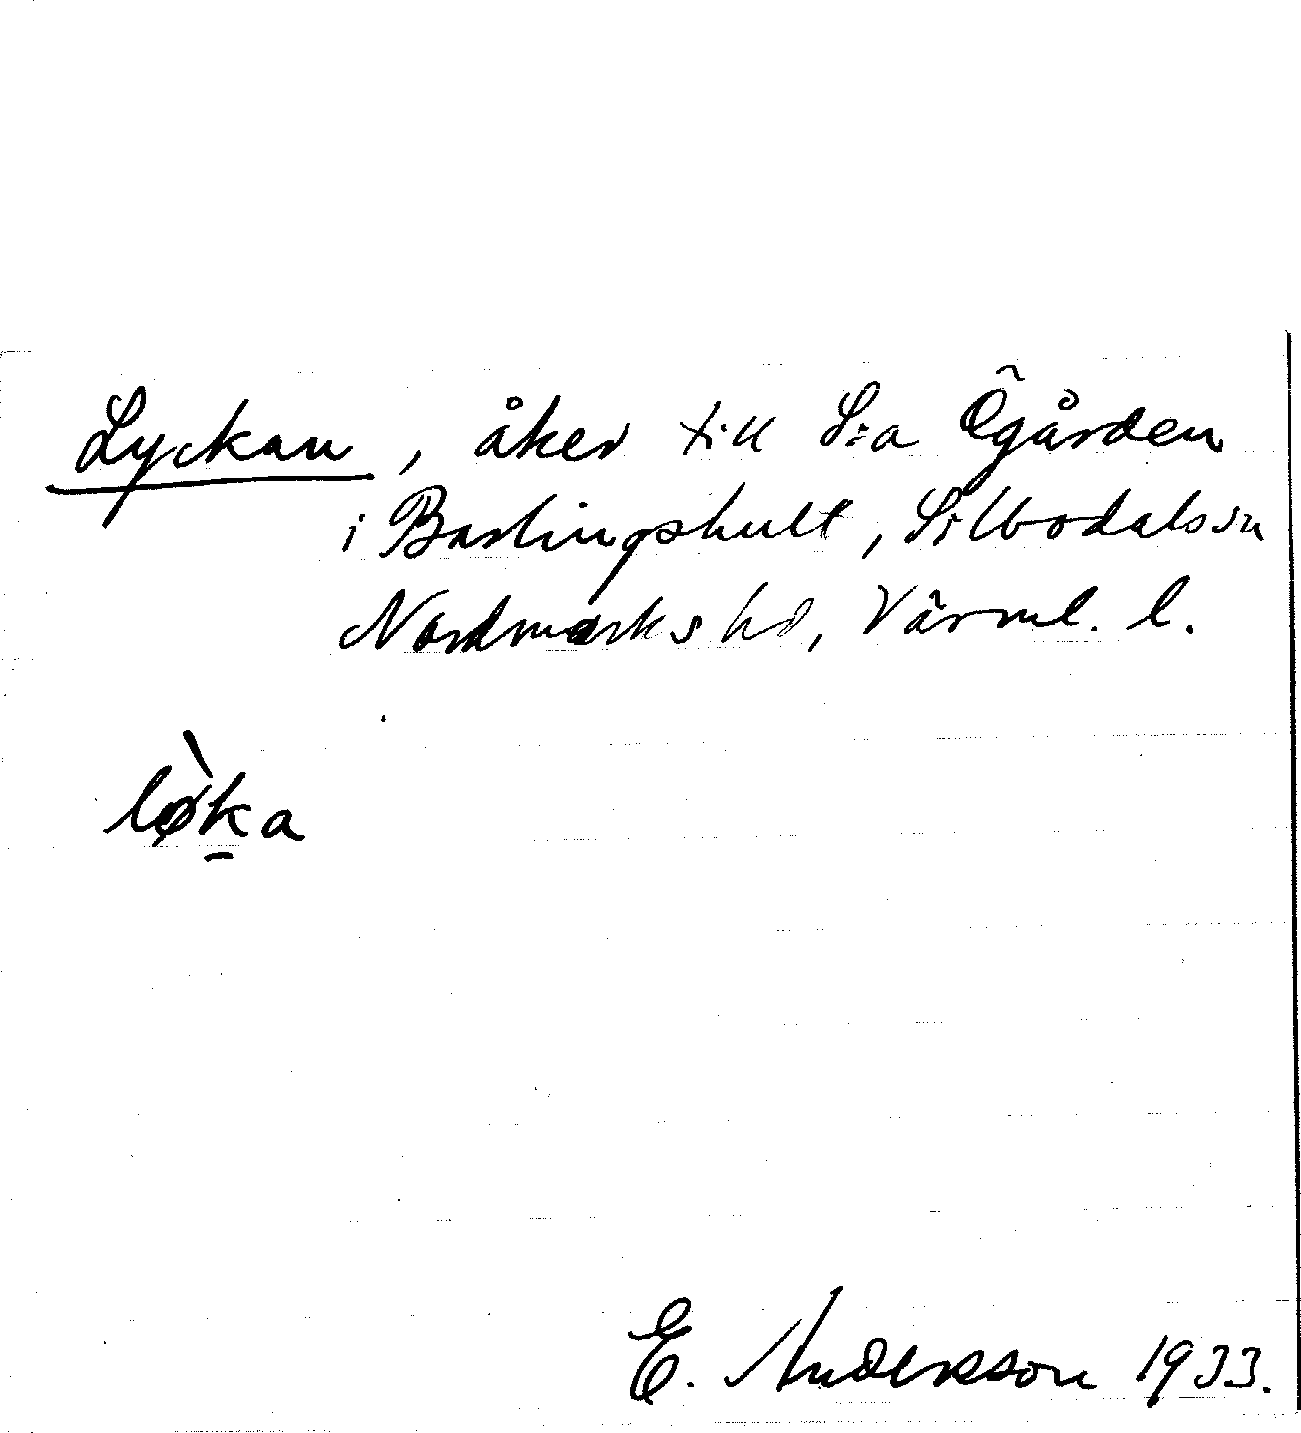 Lyckan, åker till S:a Ögården
i Barlingshult, Silbodals sn
Nordmarks hd, Värml. l.
lø̀ka
E. Andersson 1933.